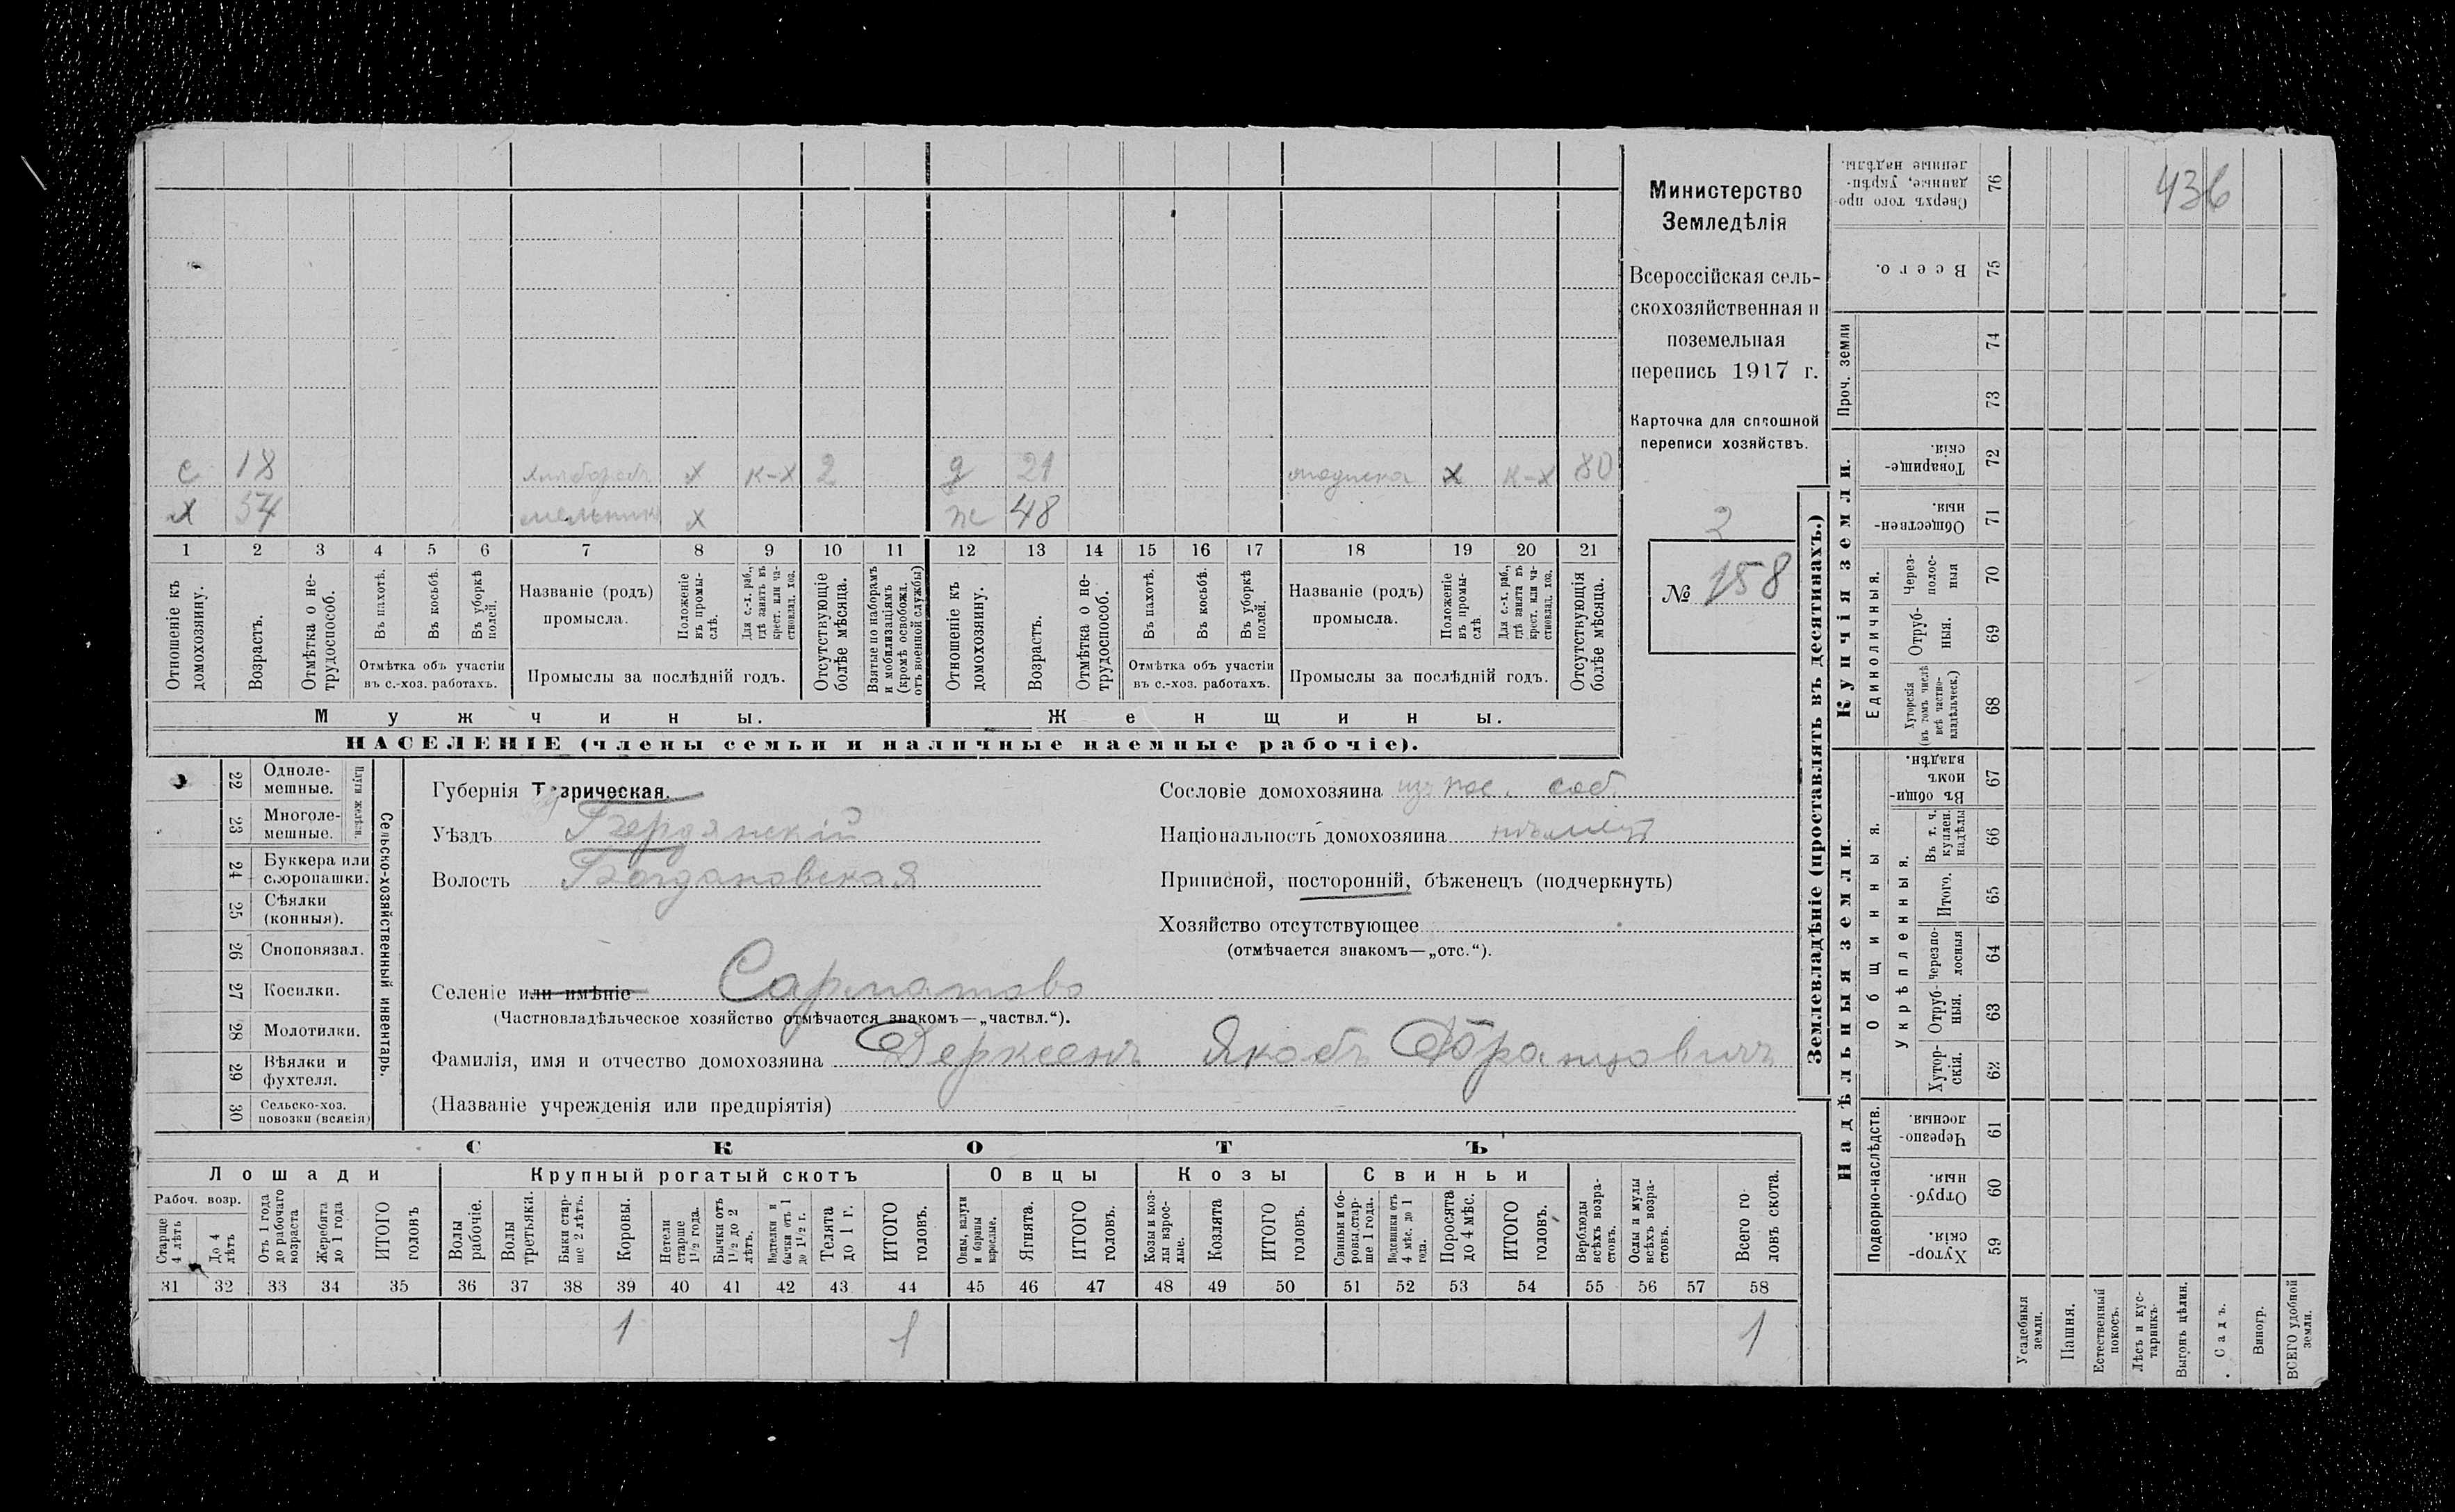 Министерство
Земледѣлія
Всероссійская сель-
скохозяйственная и
поземельная
перепись 1917 г.
Карточка для сплошной
переписи хозяйствъ.
3
№ 158
с 18 х к-х 2 д 21 модистка х к-х 80
х 54 мельникъ х ж 48
1 2 3 4 5 6 7 8 9 10 11 12 13 14 15 16 17 18 19 20 21
Отношеніе къ домохозяину.
Возрастъ.
Отмѣтка о не-трудоспособ.
Въ пахотѣ.
Въ косьбѣ.
Въ уборкѣ полей.
Отмѣтка объ участіи
въ с.-хоз. работахъ.
Названіе (родъ)
промысла.
Положеніе въ промы-слѣ.
Для с.-х. раб., гдѣ занятъ въ крест. или ча-стновлад. хоз.
Промыслы за послѣдній годъ.
Отсутствующіе болѣе мѣсяца.
Взятые по наборамъ и мобилизаціямъ (кромѣ освобожд. отъ военной службы)
Отношеніе къ домохозяину.
Возрастъ.
Отмѣтка о не-трудоспособ.
Въ пахотѣ.
Въ косьбѣ.
Въ уборкѣ полей.
Отмѣтка объ участіи
въ с.-хоз. работахъ.
Названіе (родъ)
промысла.
Положеніе въ промы-слѣ.
Для с.-х. раб., гдѣ занята въ крест. или ча-стновлад. хоз.
Промыслы за послѣдній годъ.
Отсутствующія болѣе мѣсяца.
Мужчины.
Женщины.
НАСЕЛЕНІЕ (члены семьи и наличные наемные рабочіе).
22 Одноле-мешные.
23 Многоле-мешные.
Плуги желѣзн.
24 Буккера или скоропашки.
25 Сѣялки (конныя).
26 Сноповязал.
27 Косилки.
28 Молотилки.
29 Вѣялки и фухтеля.
30 Сельско-хоз. повозки (всякія)
Сельско-хозяйственный инвентарь.
Губернія Таврическая.
Уѣздъ Бердянскій
Волость Богдановская
Сословіе домохозяина из пос. соб.
Національность домохозяина нѣмецъ
Приписной, посторонній, бѣженецъ (подчеркнуть)
Хозяйство отсутствующее
(отмѣчается знакомъ—„отс.“).
Селеніе или имѣніе Сарматово
(Частновладѣльческое хозяйство отмѣчается знакомъ—„частвл.“).
Фамилія, имя и отчество домохозяина Дерксенъ Якобъ Францовичъ
(Названіе учрежденія или предпріятія)
СКОТЪ
Лошади
Крупный рогатый скотъ
Овцы
Козы
Свиньи
Рабоч. возр.
Старше 4 лѣтъ
До 4 лѣтъ
Отъ 1 года до рабочаго возраста
Жеребята до 1 года
ИТОГО головъ
Волы рабочіе.
Волы третьяки.
Быки стар-ше 2 лѣтъ.
Коровы.
Нетели старше 1½ года.
Бычки отъ 1½ до 2 лѣтъ.
Подтелки и бычки отъ 1 до 1½ г.
Телята до 1 г.
ИТОГО головъ.
Овцы, валухи и бараны взрослые.
Ягнята.
ИТОГО головъ.
Козы и коз-лы взрос-лые.
Козлята
ИТОГО головъ.
Свиньи и бо-ровы стар-ше 1 года.
Подсвинки отъ 4 мѣс. до 1 года.
Поросята до 4 мѣс.
ИТОГО головъ.
Верблюды всѣхъ возра-стовъ.
Ослы и мулы всѣхъ возра-стовъ.
Всего го-ловъ скота.
31 32 33 34 35 36 37 38 39 40 41 42 43 44 45 46 47 48 49 50 51 52 53 54 55 56 57 58
1 1 1
Землевладѣніе (проставлять въ десятинахъ.)
Надѣльныя земли.
Купчія земли.
Проч. земли
Подворно-наслѣдств.
Общинныя.
Укрѣпленныя.
Единоличныя.
59 Хутор-скія.
60 Отруб-ныя.
61 Черезпо-лосныя.
62 Хутор-скія.
63 Отруб-ныя.
64 Черезпо-лосныя
65 Итого.
66 Въ т. ч. куплен. надѣлы
67 Въ общи-номъ владѣн.
68 Хуторскія (въ томъ числѣ всѣ частно-владѣльческ.)
69 Отруб-ныя.
70 Через-полос-ныя
71 Обществен-ныя.
72 Товарище-скія.
73
74
75 Всего.
76 Сверхъ того про-данные, укрѣп-ленные надѣлы.
436
Усадебныя земли.
Пашня.
Естественный покосъ.
Лѣсъ и кус-тарникъ.
Выгонъ цѣлин.
Садъ.
Виногр.
ВСЕГО удобной земли.